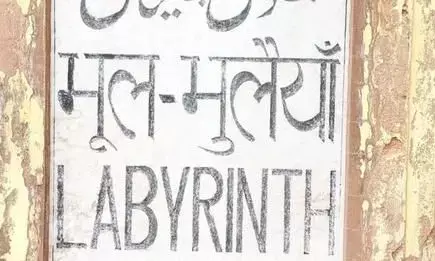 मूल-मुलैयाँ
LABYRINTH